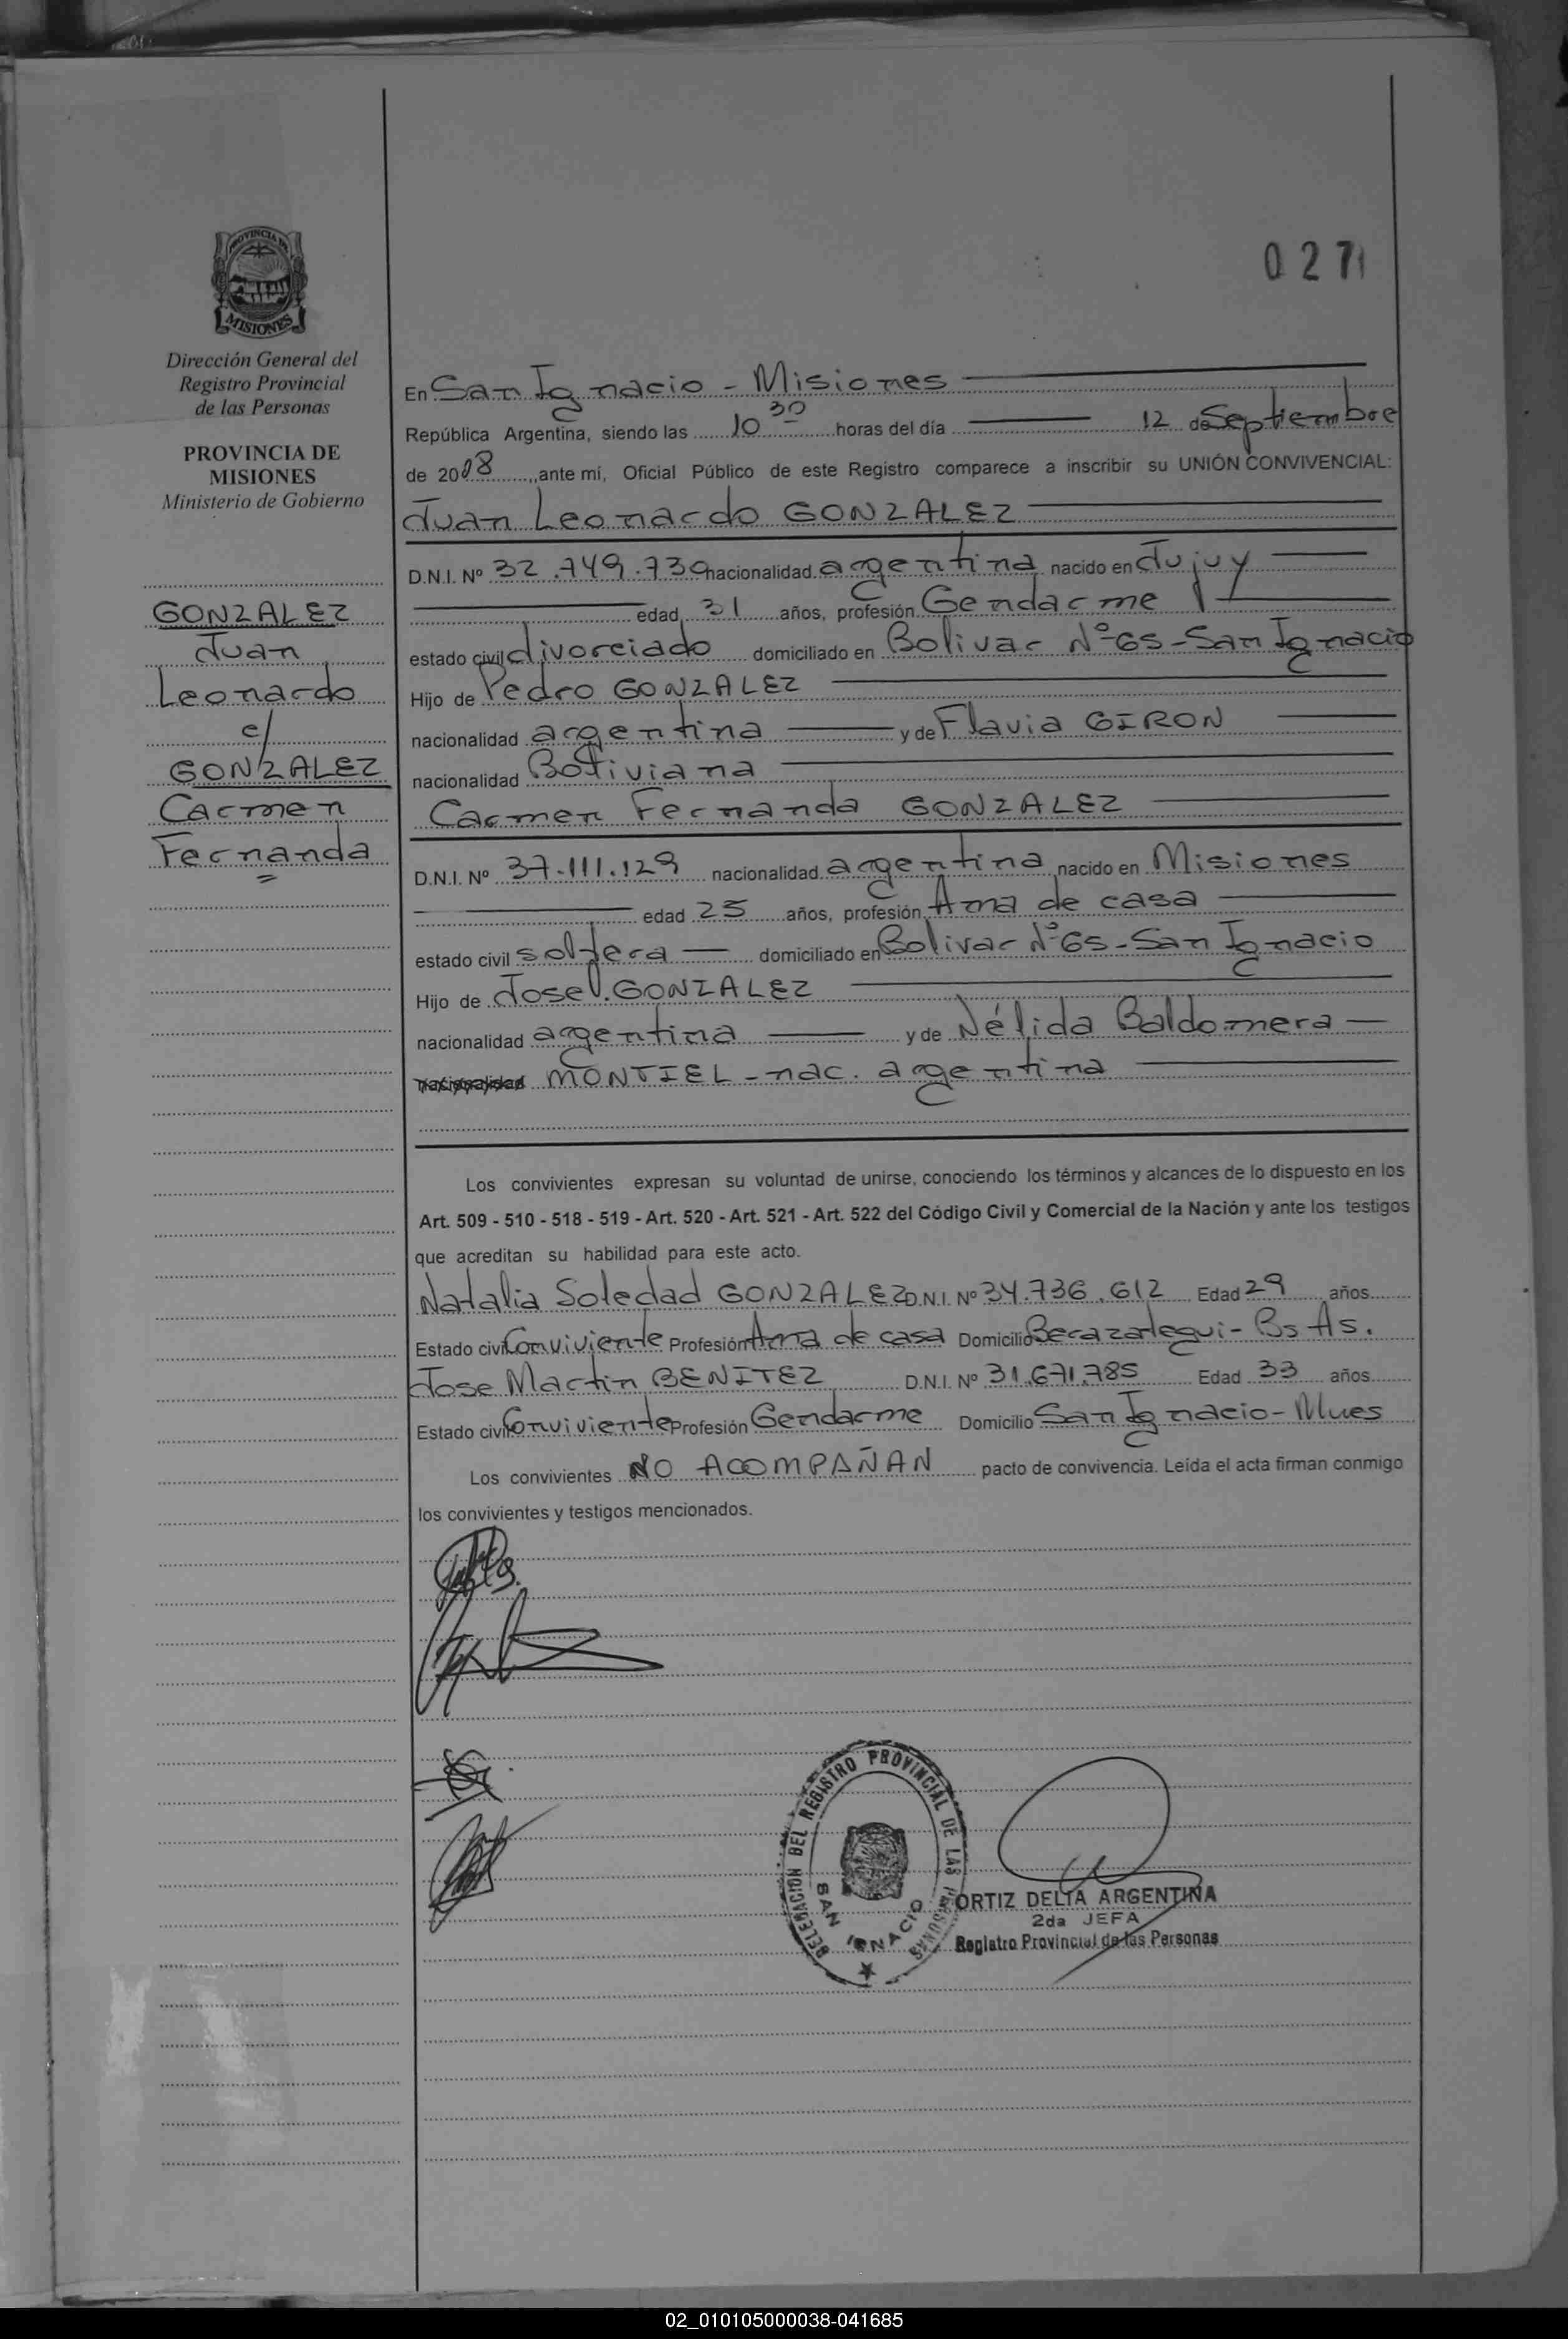 PROVINCIA DE
MISIONES
Dirección General del
Registro Provincial
de las Personas
PROVINCIA DE
MISIONES
Ministerio de Gobierno
GONZALEZ
Juan
Leonardo
c/
GONZALEZ
Carmen
Fernanda
027
En San Ignacio - Misiones
República Argentina, siendo las 10 30 horas del día 12 de Septiembre
de 2018, ante mí, Oficial Público de este Registro comparece a inscribir su UNIÓN CONVIVENCIAL:
Juan Leonardo GONZALEZ
D.N.I. Nº 32.749.739 nacionalidad argentina nacido en Jujuy
edad 31 años, profesión Gendarme
estado civil divorciado domiciliado en Bolivar Nº 65 - San Ignacio
Hijo de Pedro GONZALEZ
nacionalidad argentina y de Flavia GIRON
nacionalidad Boliviana
Carmen Fernanda GONZALEZ
D.N.I. Nº 37.111.129 nacionalidad argentina nacido en Misiones
edad 25 años, profesión Ama de casa
estado civil soltera domiciliado en Bolivar Nº 65 - San Ignacio
Hijo de Jose V. GONZALEZ
nacionalidad argentina y de Nélida Baldomera
nacionalidad MONTIEL - nac. argentina
Los convivientes expresan su voluntad de unirse, conociendo los términos y alcances de lo dispuesto en los
Art. 509 - 510 - 518 - 519 - Art. 520 - Art. 521 - Art. 522 del Código Civil y Comercial de la Nación y ante los testigos
que acreditan su habilidad para este acto.
Natalia Soledad GONZALEZ D.N.I. Nº 34.736.612 Edad 29 años
Estado civil Conviviente Profesión Ama de casa Domicilio Berazategui - Bs As.
Jose Martin BENITEZ D.N.I. Nº 31.671.785 Edad 33 años
Estado civil Conviviente Profesión Gendarme Domicilio San Ignacio - Mnes
Los convivientes NO ACOMPAÑAN pacto de convivencia. Leída el acta firman conmigo
los convivientes y testigos mencionados.
DELEGACION DEL REGISTRO PROVINCIAL DE LAS PERSONAS
SAN IGNACIO
ORTIZ DELIA ARGENTINA
2da JEFA
Registro Provincial de las Personas
02_010105000038-041685